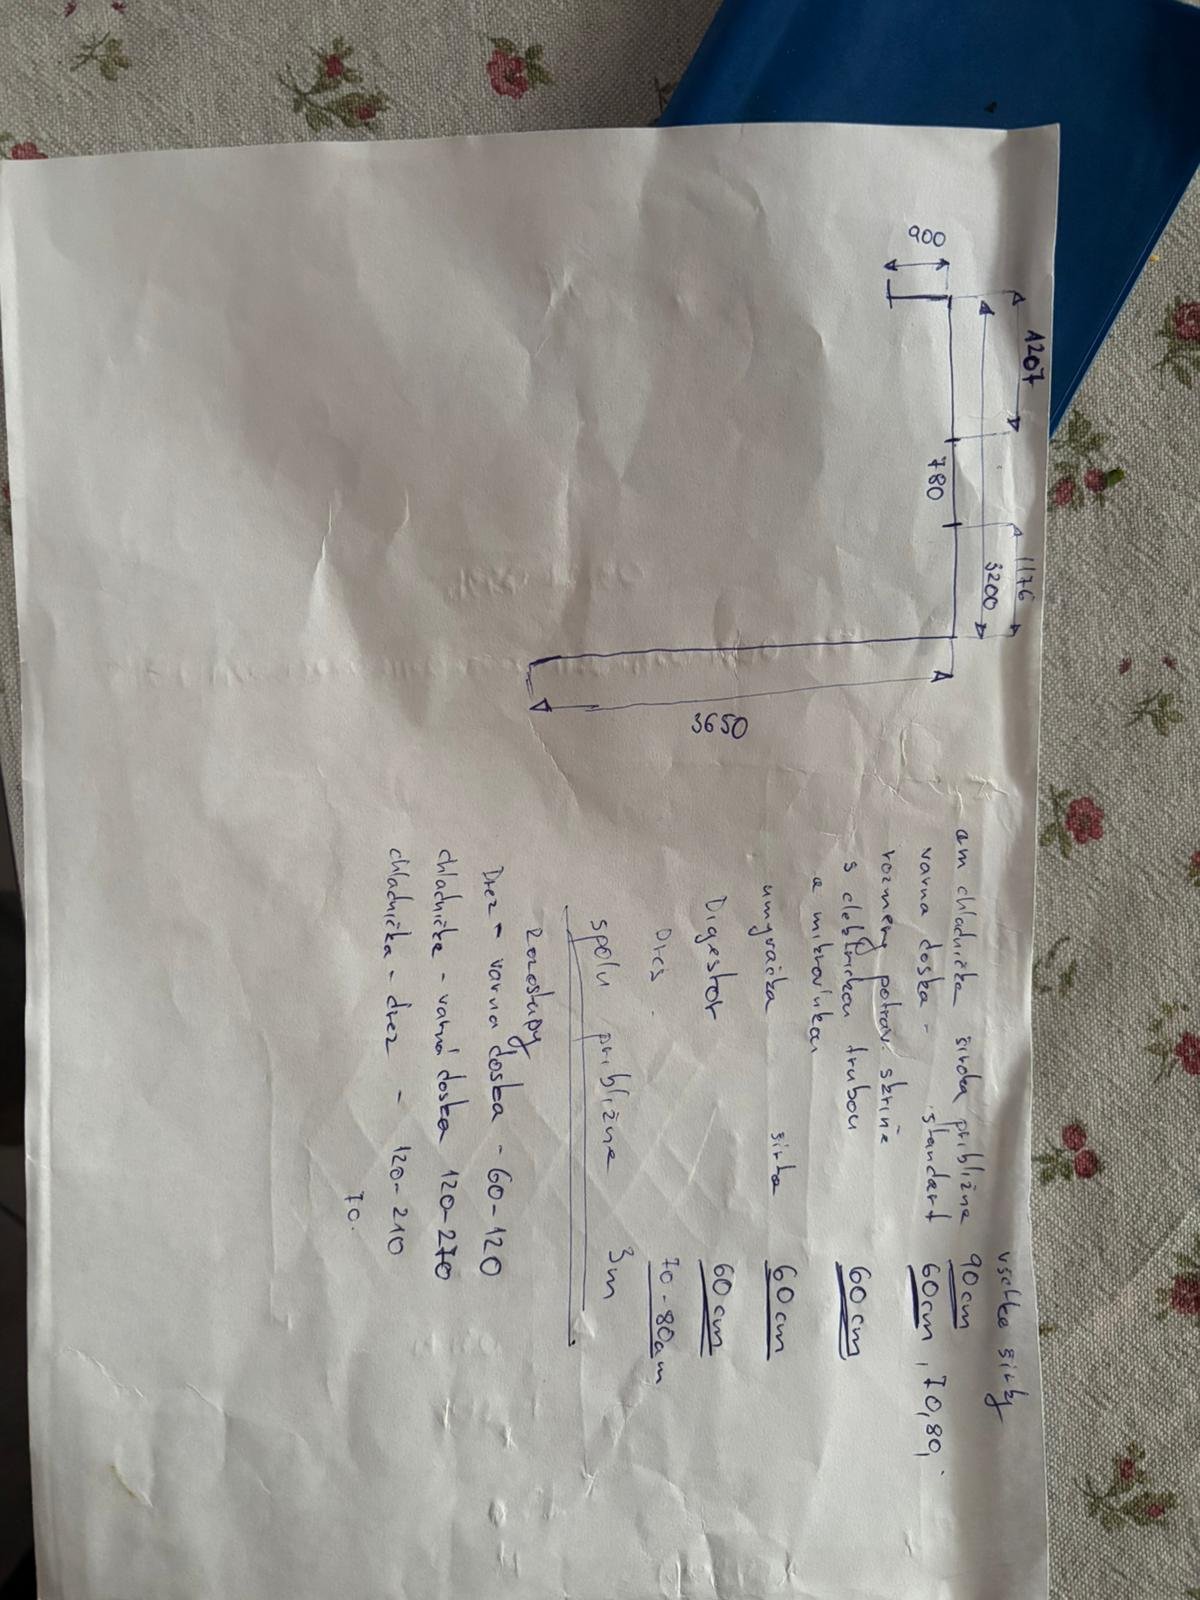 900
1207
780
1176
3200
3650
všetko širky
am chladnička široka približne 90cm
varna doska - štandart 60cm, 70,80,
rozmery potrav. skrine
s elektrickou trubou 60cm
a mikrovlnkou
umyvačka širka 60cm
Digestor 60cm
Drez. 70-80cm
spolu približne 3m
Rozostupy
Drez - varna doska - 60-120
chladnička - varná doska 120-270
chladnička - drez - 120-210
70.